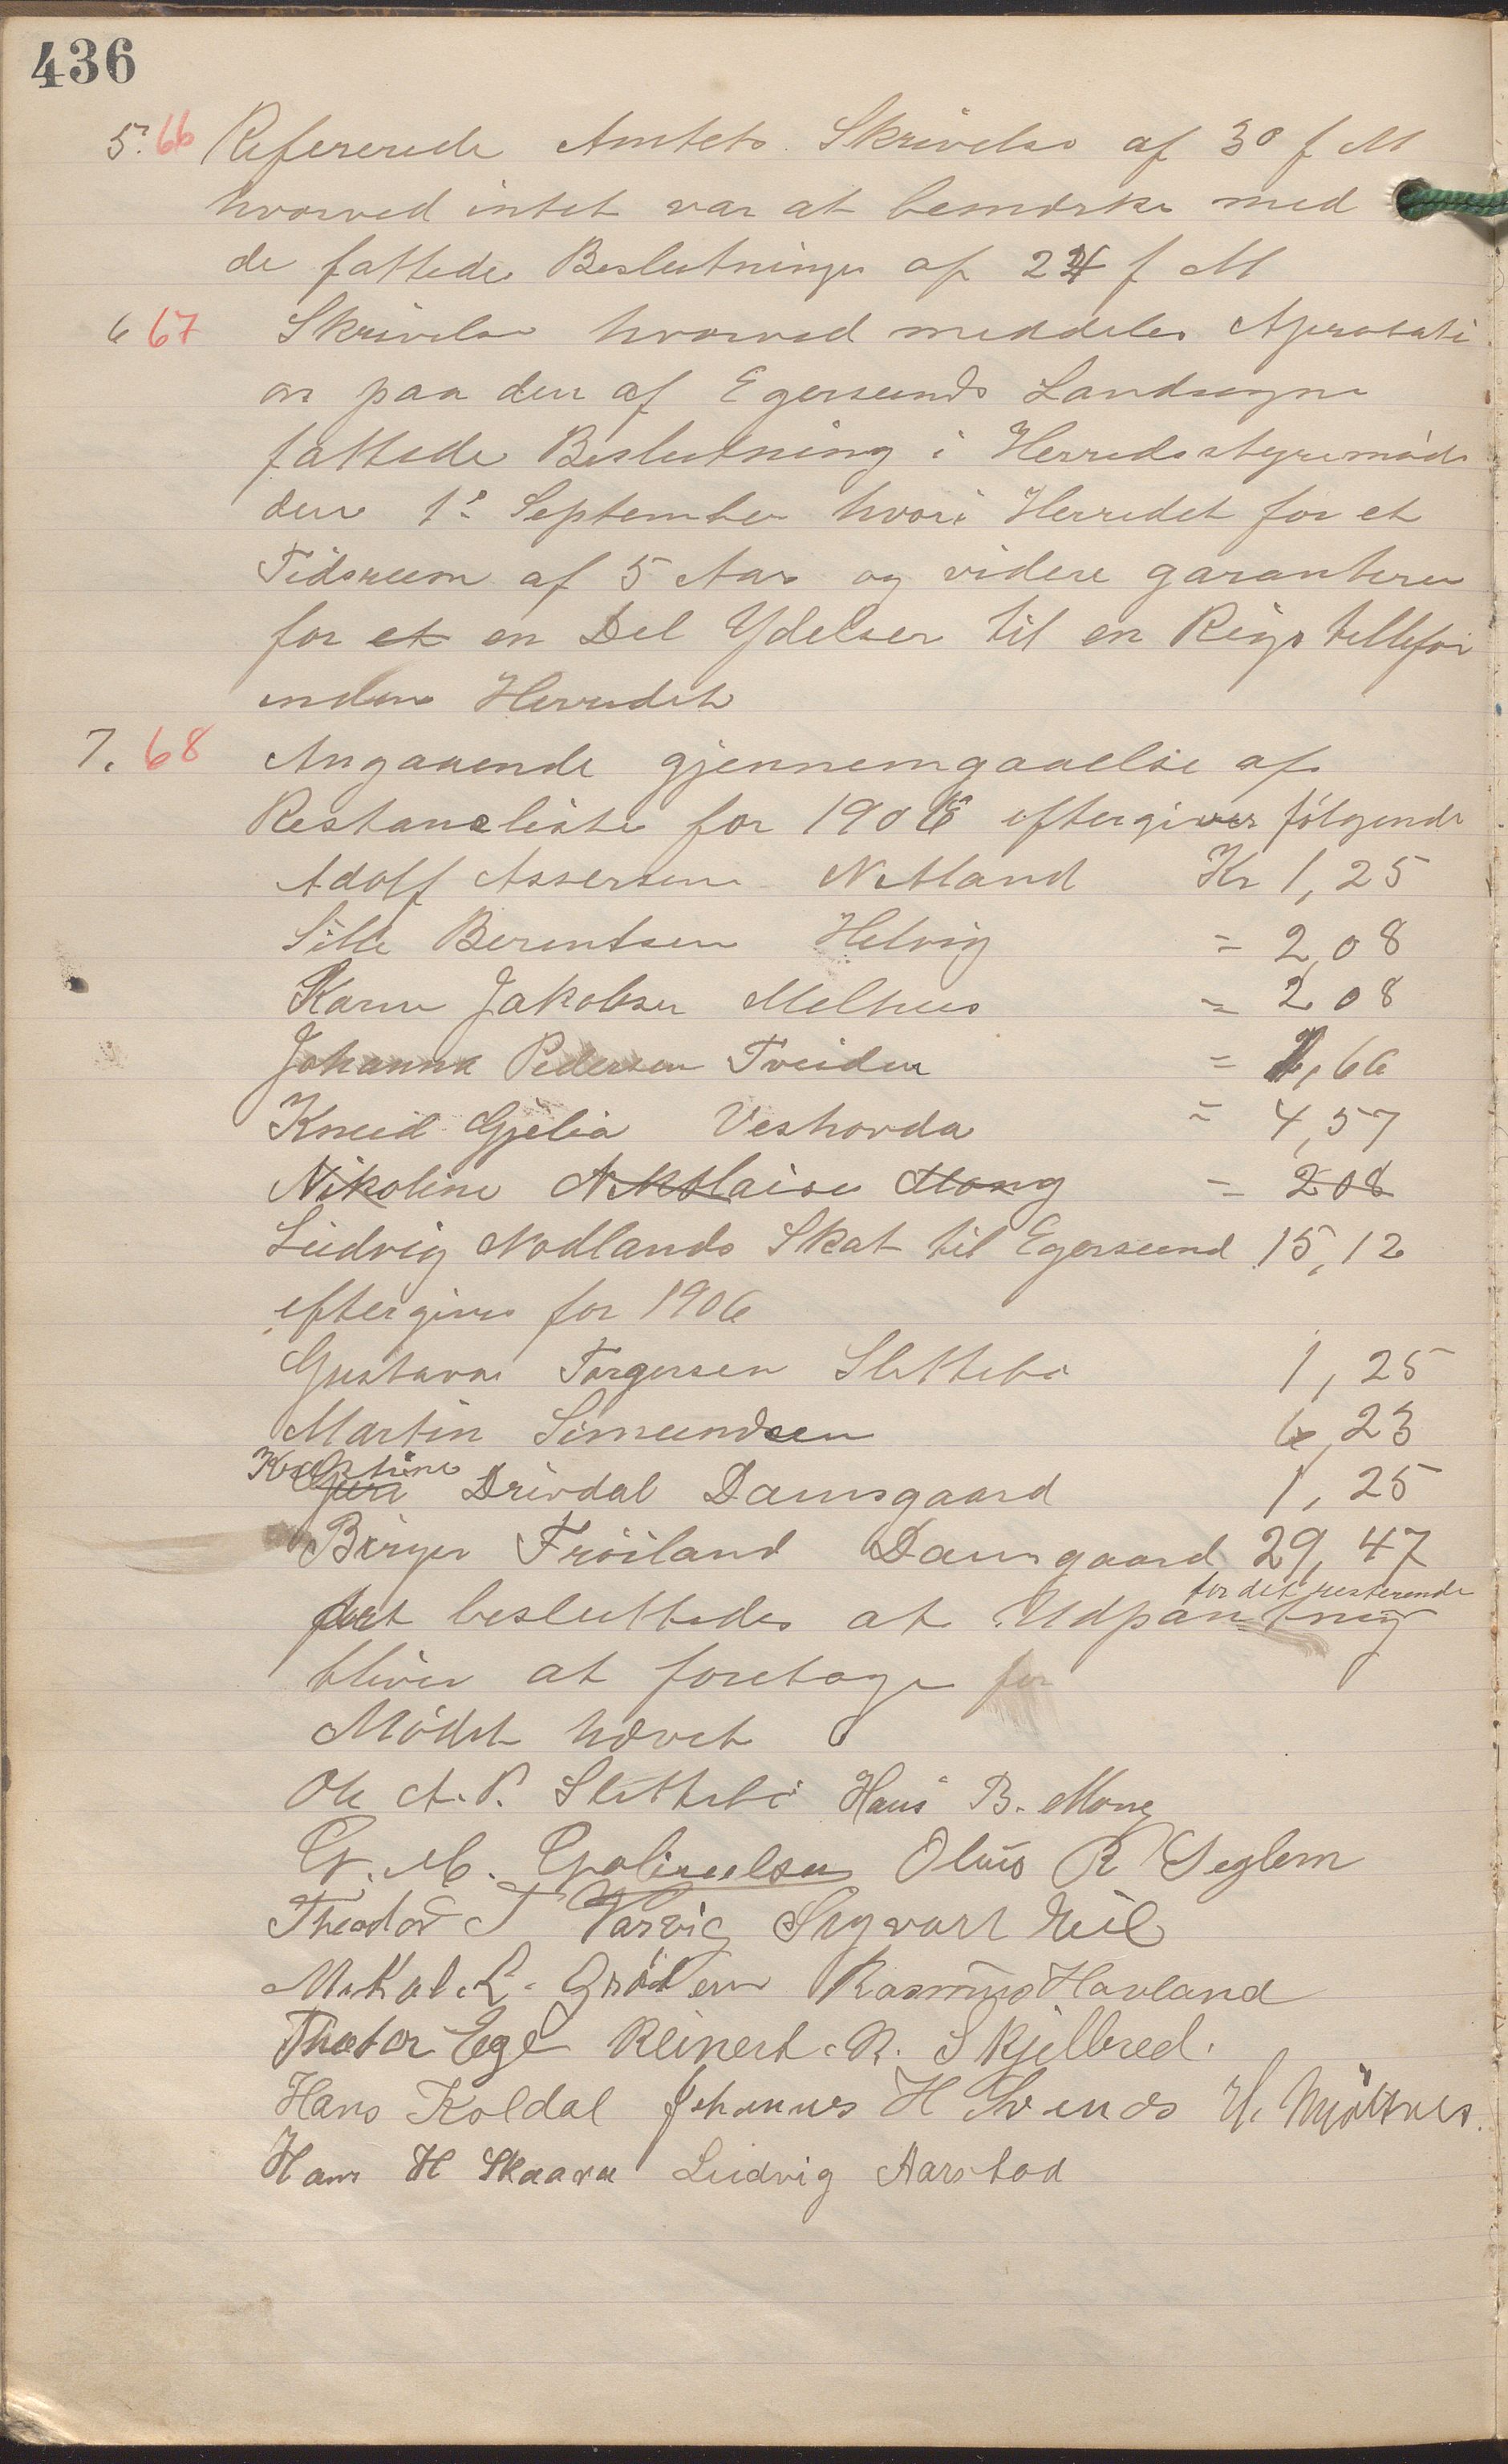 436
5. 66 Refererede Amtets Skrivelse af 30 f M
hvorved intet var at bemærke med
de fattede Beslutninger af 24 f M
6 67 Skrivelse hvorved meddeles Aprobati
on paa den af Egersunds Landsogn
fattede Beslutning i Herredsstyremøde
den 1ste September hvori Herredet for et
Tidsrum af 5 Aar og videre garanterer
for et en Del Ydelser til en Rigstellefon
inden Herredet
7. 68 Angaaende gjennemgaaelse af
Restanceliste for 1906 eftergives følgende
Adolf Assersen Netland Kr 1,25
Sille Berentsen Helvig = 2,08
Karen Jakobsen Melhus = 2 08
Johanna Pedersen Tveiden = 1,66
Knud Gjelia Veshovda = 4,57
Nikoline Nikolaisen Mong = 2 08
Ludvig Nodlands Skat til Egersund 15,12
eftergives for 1906
Gustava Torgersen Slettebø 1,25
Martin Simundsen 6,23
Kristine
Guri Drivdal Damsgaard 1,25
Birger Frøiland Damsgaard 29,47
for det resterende
det besluttedes at Udpantning
bliver at foretage for
Mødet hævet
Ole A. P. Slettebø Hans B. Mong
G. M. Olaus R Seglem
Theodor T Varvig Sigvart Eie
Mikal. L. Grødem Rasmus Havland
Theodor Ege Reinert. R. Skjelbred.
Hans Koldal Johannes H Svends H. Mjølhus.
Hans H Skaara Ludvig Aarstad